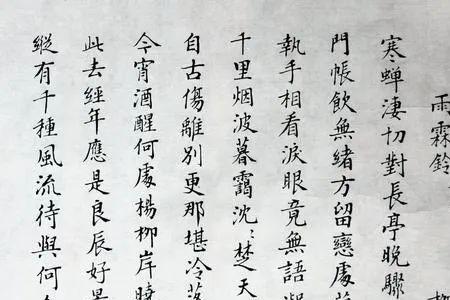 雨霖鈴
寒蟬淒切對長亭晚驟
門帳飲無緒方留戀處
執手相看淚眼竟無語
千里烟波暮靄沈〻楚天
自古傷離別更那堪冷落
今宵酒醒何處楊柳岸曉
此去經年應是良辰好景
縱有千種風流待與何人